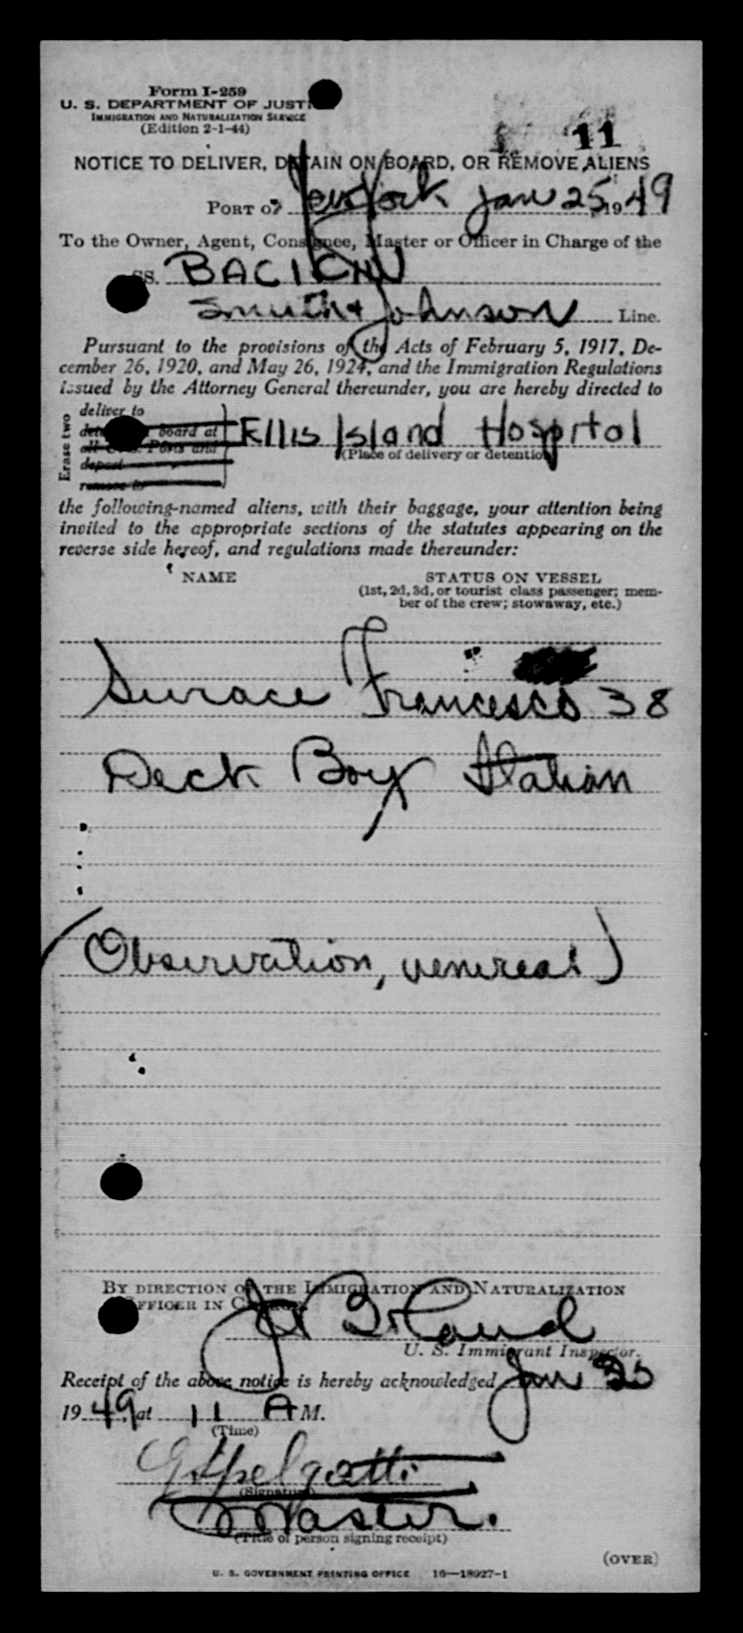 Form I-259
U. S. DEPARTMENT OF JUSTICE
IMMIGRATION AND NATURALIZATION SERVICE
(Edition 2-1-44)
11
NOTICE TO DELIVER, DETAIN ON BOARD, OR REMOVE ALIENS
PORT OF New York Jan 25, 1949
To the Owner, Agent, Consignee, Master or Officer in Charge of the
SS. BACICIN
Smith & Johnson Line.
Pursuant to the provisions of the Acts of February 5, 1917, De-
cember 26, 1920, and May 26, 1924, and the Immigration Regulations
issued by the Attorney General thereunder, you are hereby directed to
Erase two
deliver to
board at
Ports and
deport
remove to
Ellis Island Hospital
(Place of delivery or detention)
the following-named aliens, with their baggage, your attention being
invited to the appropriate sections of the statutes appearing on the
reverse side hereof, and regulations made thereunder:
NAME STATUS ON VESSEL
(1st, 2d, 3d, or tourist class passenger; mem-
ber of the crew; stowaway, etc.)
Surace Francesco 38
Deck Boy Italian
(Observation, venereal)
BY DIRECTION OF THE IMMIGRATION AND NATURALIZATION
OFFICER IN CHARGE.
U. S. Immigrant Inspector.
Receipt of the above notice is hereby acknowledged Jan 25
1949, at 11 A M.
(Time)
(Signature)
Master.
(Title of person signing receipt)
(OVER)
U. S. GOVERNMENT PRINTING OFFICE 16—18927-1